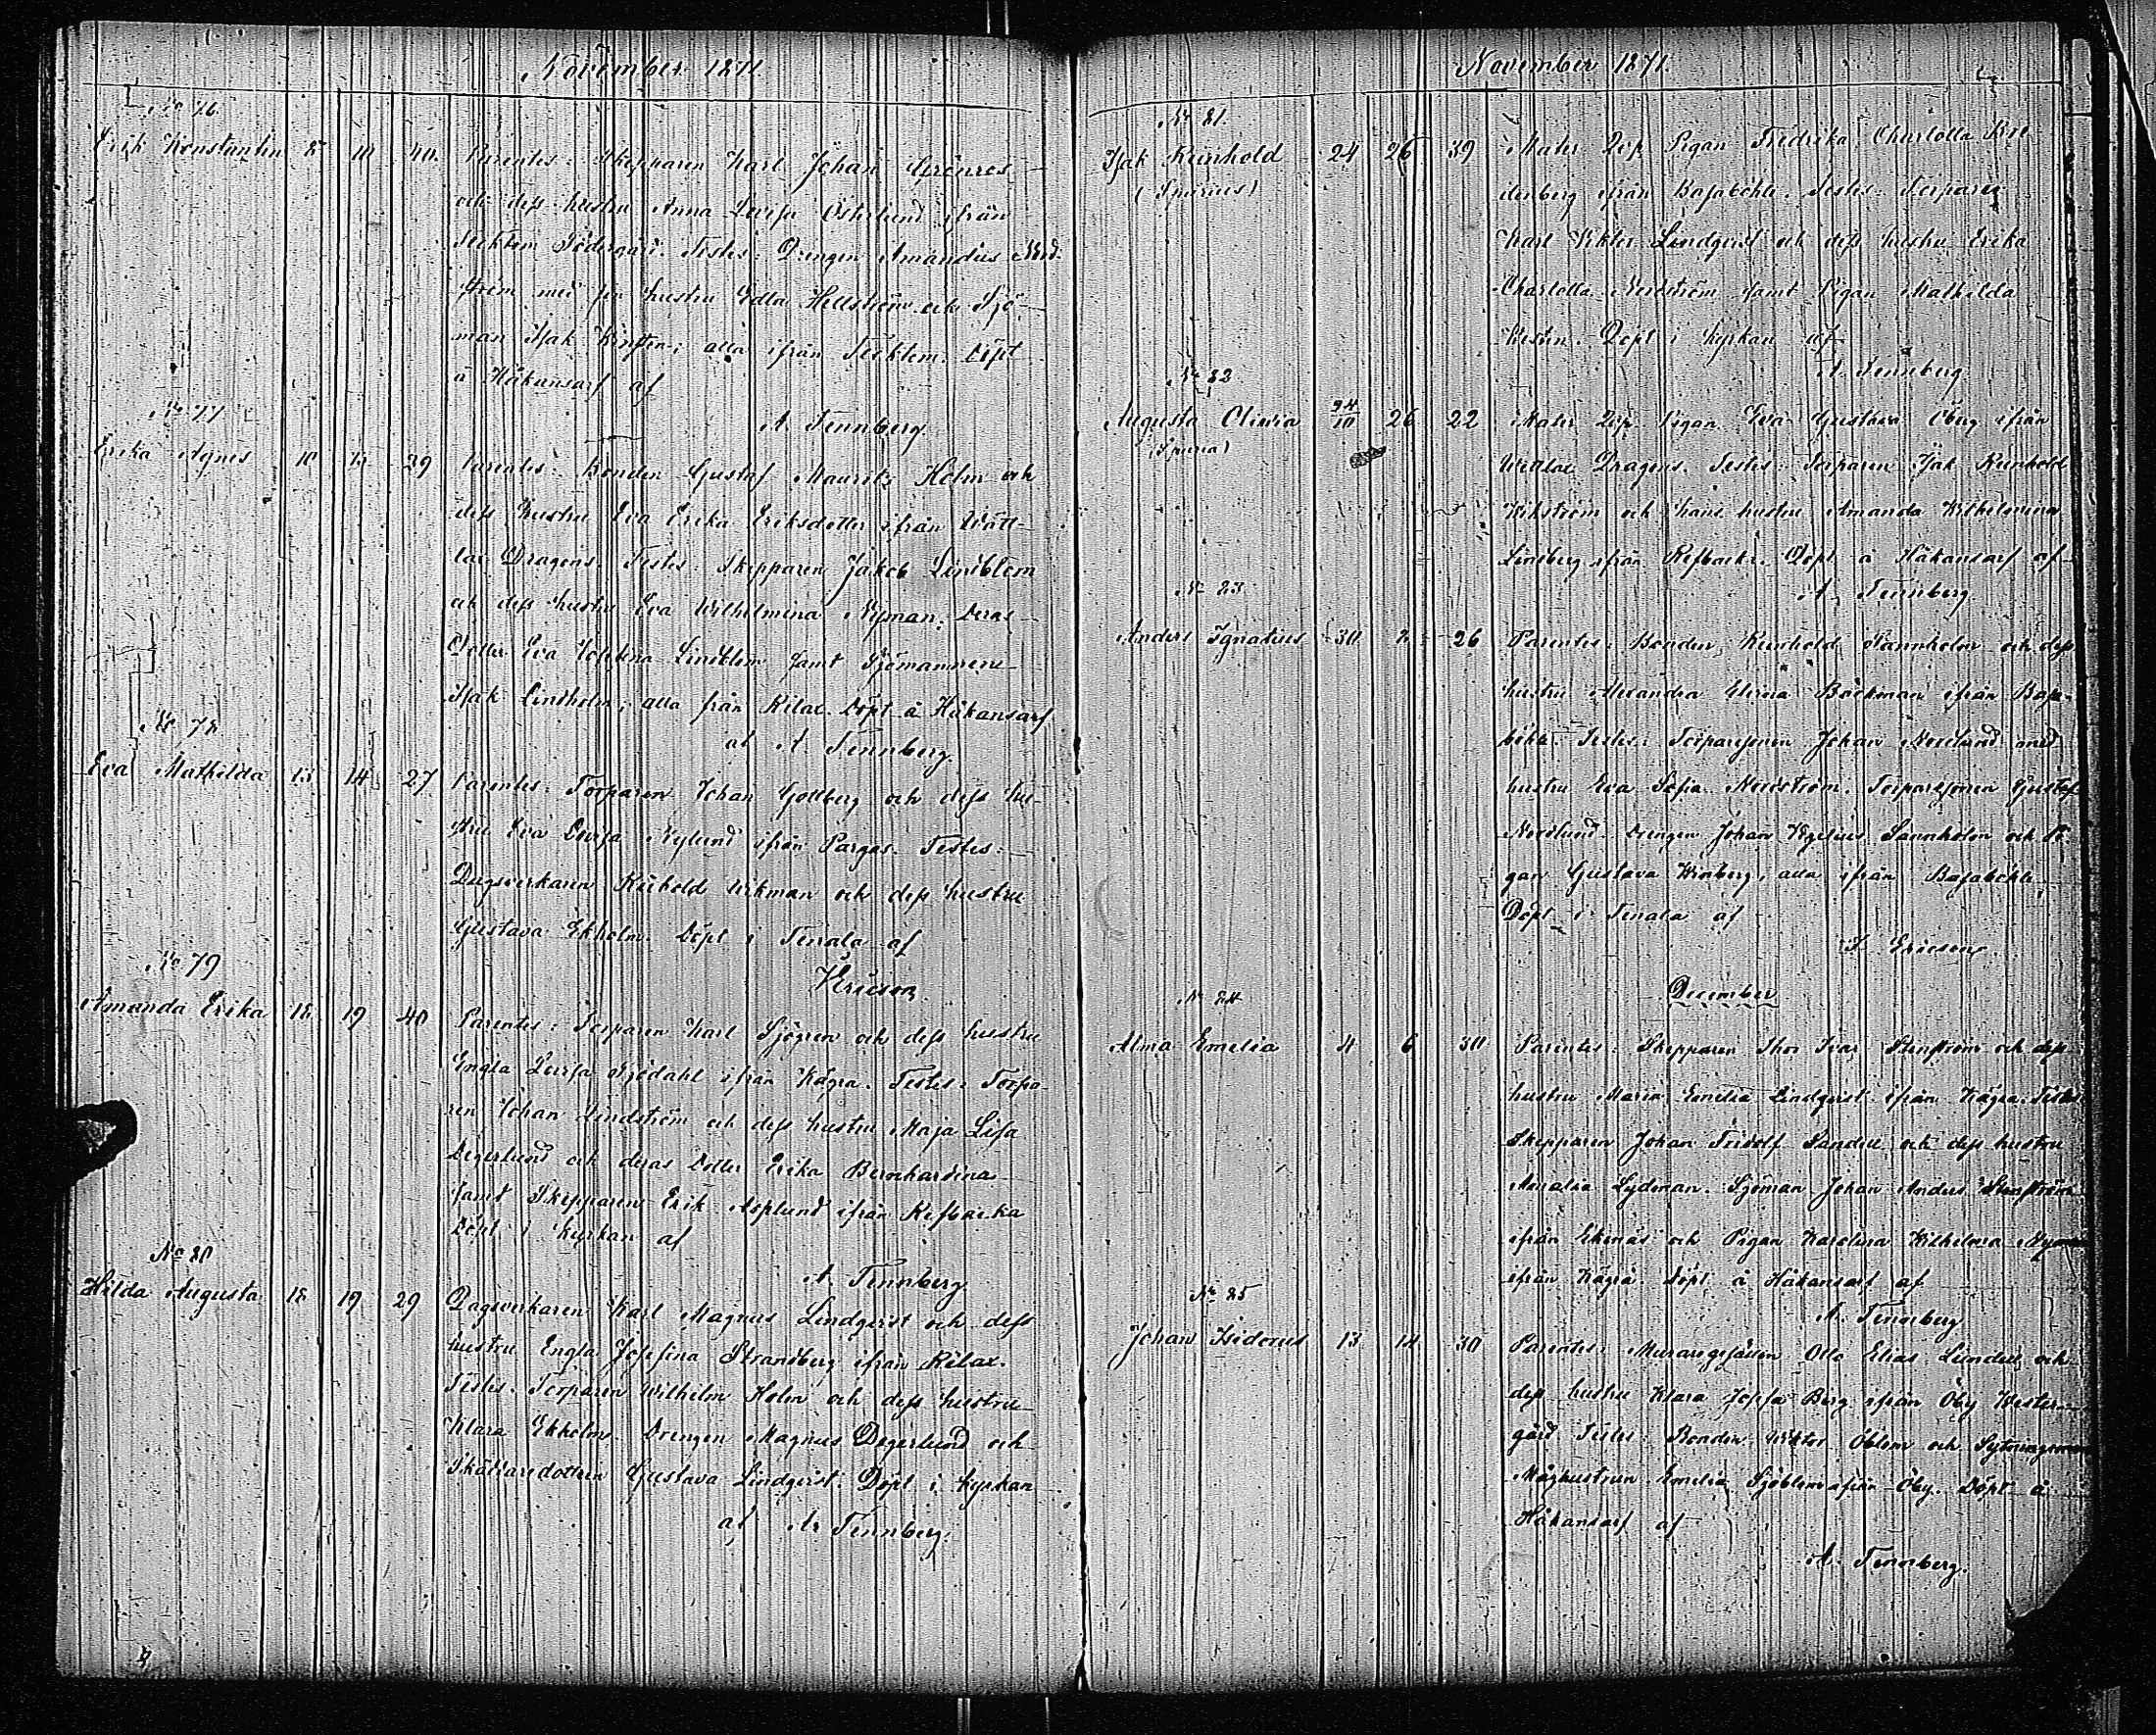 November 1871.
No 76.
Erik Konstantin 8 10 40. Parentes: Skepparen Karl Johan Grönros
och dess hustru Anna Lovisa Österlund ifrån
Tecktom Södergård. Testes: Drengen Amandus Nord-
ström med sin hustru Edla Hellström och Sjö-
man Isak ; alla ifrån Tecktom. Döpt
å Håkansarf af
A Tennberg
No 77
Erika Agnes 10 13 29 Parentes: Bonden Gustaf Mauritz Holm och
dess hustru Eva Erika Eriksdotter ifrån Wätt-
lax Dragens. Testes: Skepparen Jakob Lindblom
och dess hustru Eva Wilhelmina Nyman; deras
Dotter Eva Josefina Lindblom samt Sjömannen
Isak Lindholm; alla från Rilax. Döpt å Håkansarf
af A Tennberg
No 78
Eva Mathilda 13 14 27. Parentes: Torparen Johan Gottberg och dess hu-
stru Eva Lovisa Nylund ifrån Pargas. Testes:
Dagsverkaren Reinhold Wikman och dess hustru
Gustava Ekholm. Döpt i Tenala af
Ericson
No 79
Amanda Erika 18 19 40 Parentes: Torparen Karl Sjögren och dess hustru
Engla Lovisa Sjödahl ifrån Kägra. Testes: Torpa-
ren Johan Lindström och dess hustru Maja Lisa
Degerlund och deras Dotter Erika Bernhardina
samt Skepparen Erik Asplund ifrån Refbacka
Döpt i Kyrkan af
A. Tennberg
No 80
Hilda Augusta 18 19 29 Dagsverkaren Karl Magnus Lindqvist och dess
hustru Engla Josefina Strandberg ifrån Rilax.
Testes. Torparen Wilhelm Holm och dess hustru
Klara Ekholm. Drengen Magnus Degerlund och
Gustava Lindqvist. Döpt i Kyrkan
af A. Tennberg.
November 1871.
No 81.
Isak Reinhold 24 26 39 Mater Dep. Pigan Fredrika Charlotta
(Spurius)
denberg ifrån Basaböhle. Testes: Torparen
Karl Viktor Lindqvist och dess hustru Erika
Charlotta Nordström samt Pigan Mathilda
Döpt i Kyrkan af
A. Tennberg
No 82
Augusta Olivia 24/10 26 22 Mater Dep. Pigan Eva Gustava Öberg ifrån
(Spuria)
Wettlax Dragens. Testes: Torparen Isak Reinhold
Wikström och hans hustru Amanda Wilhelmina
Lindberg ifrån Refbacka. Döpt å Håkansarf af
A. Tennberg
No 83
Anders Ignatius 30 26 Parentes: Bonden Reinhold Sannholm och dess
hustru Alexandra Bäckman ifrån Basa-
böhle. Testes: Torparsonen Johan Nordlund med
hustru Eva Sofia Nordström. Torparsonen Gustaf
Nordlund. Drengen Johan Sannholm och Pi-
gan Gustava Winberg, alla ifrån Basaböhle.
Döpt i Tenala af
Ericson
December
No 84
Alma Emelia 4 6 30 Parentes: Skepparen Thor Ivar Stenström och dess
hustru Maria Emelia Lindqvist ifrån Kägra. Testes
Skepparen Johan Fridolf Sandell och dess hustru
Amalia Lydman. Sjöman Johan Anders Stenström
ifrån Ekenäs och Pigan Karolina Wilhelmina Nyman
ifrån Kägra. Döpt å Håkansarf af
A. Tennberg
No 85
Johan Isidorus 13 14 30 Parentes: Muraregesällen Otto Elias Lundell och
dess hustru Klara Josefa Berg ifrån Öby Wester-
gård Testes: Bonden Viktor Öblom och
Måghustrun Emelia Sjöblom ifrån Öby. Döpt å
Håkansarf af
A. Tennberg.